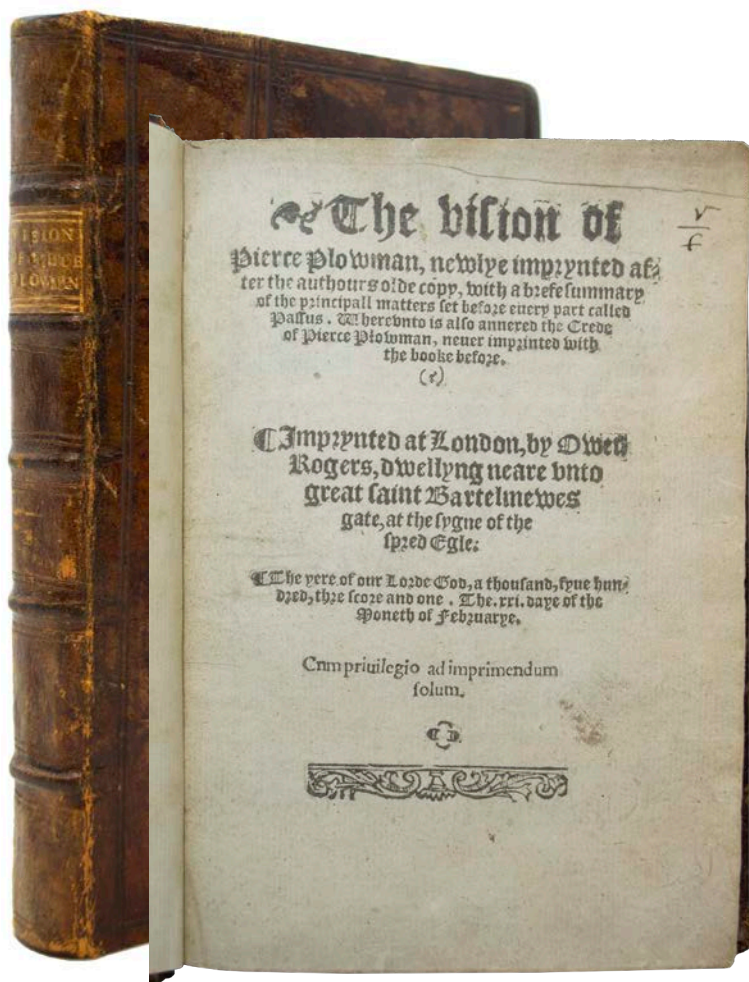 VISION
OF PIERCE
PLOWMAN
The vision of
Pierce Plowman, newlye imprynted af-
ter the authours olde copy, with a brefe summary
of the principall matters set before euery part called
Passus. Wherevnto is also annexed the Crede
of Pierce Plowman, neuer imprinted with
the booke before.
¶ Imprynted at London, by Owen
Rogers, dwellyng neare vnto
great saint Bartelmewes
gate, at the sygne of the
spred Egle:
¶ The yere of our Lorde God, a thousand, fyue hun-
dred, thre score and one. The. xxi. daye of the
Moneth of Februarye.
Cnm priuilegio ad imprimendum
solum.